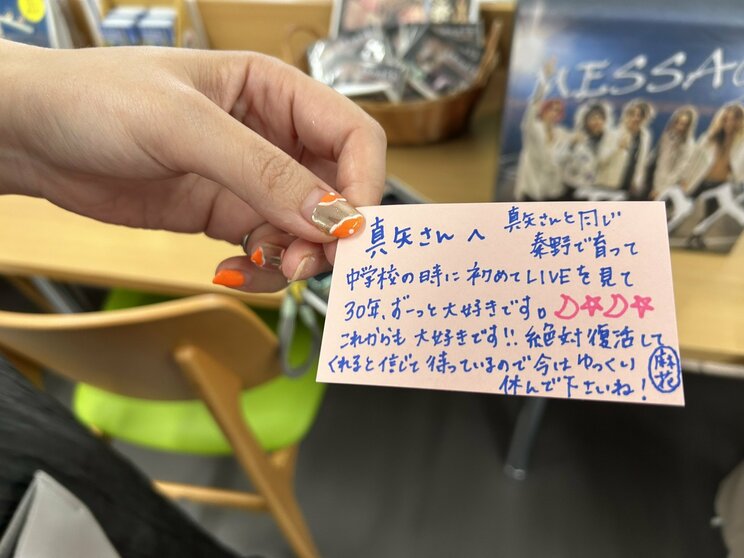 MESSA
真矢さんへ
真矢さんと同じ
秦野で育って
中学校の時に初めてLIVEを見て
30年、ずーっと大好きです。☽☆☽☆
これからも大好きです!!絶対復活して
くれると信じて待っているので今はゆっくり
休んで下さいね!
麻花